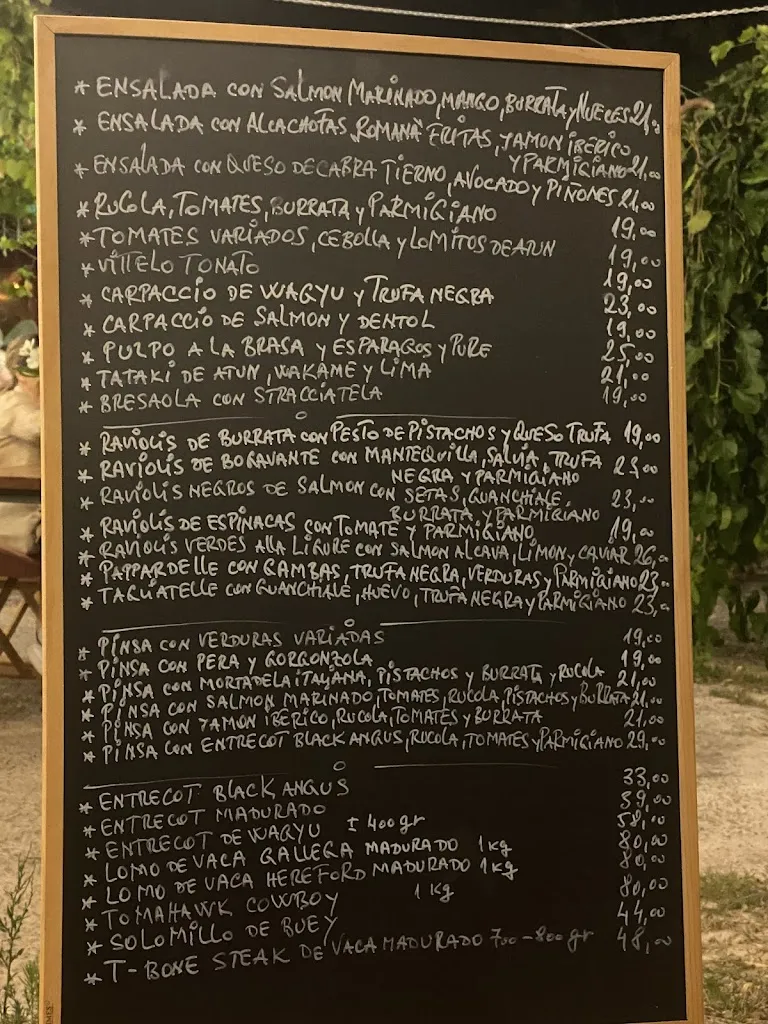 * ENSALADA CON SALMON MARINADO, MANGO, BURRATA y NUECES 21,00
* ENSALADA CON ALCACHOFAS "ROMANA" FRITAS, JAMON IBERICO
Y PARMIGIANO 21,00
* ENSALADA CON QUESO DE CABRA TIERNO, AVOCADO y PIÑONES 21,00
* RUCOLA, TOMATES, BURRATA y PARMIGIANO 19,00
* TOMATES VARIADOS, CEBOLLA y LOMITOS DE ATUN 19,00
* VITTELO TONATO 19,00
* CARPACCIO DE WAGYU y TRUFA NEGRA 23,00
* CARPACCIO DE SALMON Y DENTOL 19,00
* PULPO A LA BRASA y ESPARAGOS y PURE 25,00
* TATAKI DE ATUN, WAKAME y LIMA 21,00
* BRESAOLA CON STRACCIATELA 19,00
* RAVIOLIS DE BURRATA CON PESTO DE PISTACHOS y QUESO TRUFA 19,00
* RAVIOLIS DE BOGAVANTE CON MANTEQUILLA, SALVIA, TRUFA 23,00
NEGRA Y PARMIGIANO
* RAVIOLIS NEGROS DE SALMON CON SETAS, GUANCHIALE, 23,00
BURRATA, Y PARMIGIANO
* RAVIOLIS DE ESPINACAS CON TOMATE Y PARMIGIANO 19,00
* RAVIOLIS VERDES ALLA LIGURE CON SALMON AL CAVA, LIMON y CAVIAR 26,00
* PAPPARDELLE CON GAMBAS, TRUFA NEGRA, VERDURAS y PARMIGIANO 23,00
* TAGLIATELLE CON GUANCHIALE, HUEVO, TRUFA NEGRA y PARMIGIANO 23,00
* PINSA CON VERDURAS VARIADAS 19,00
* PINSA CON PERA Y GORGONZOLA 19,00
* PINSA CON MORTADELA ITALIANA, PISTACHOS y BURRATA y RUCOLA 21,00
* PINSA CON SALMON MARINADO, TOMATES, RUCOLA, PISTACHOS y BURRATA 21,00
* PINSA CON JAMON IBERICO, RUCOLA, TOMATES y BURRATA 21,00
* PINSA CON ENTRECOT BLACK ANGUS, RUCOLA, TOMATES y PARMIGIANO 29,00
* ENTRECOT BLACK ANGUS 33,00
* ENTRECOT MADURADO 39,00
* ENTRECOT DE WAGYU ± 400 gr 58,00
* LOMO DE VACA GALLEGA MADURADO 1 kg 80,00
* LOMO DE VACA HEREFORD MADURADO 1 kg 80,00
* TOMAHAWK COWBOY 1 kg 80,00
* SOLOMILLO DE BUEY 44,00
* T-BONE STEAK DE VACA MADURADO 700-800 gr 48,00